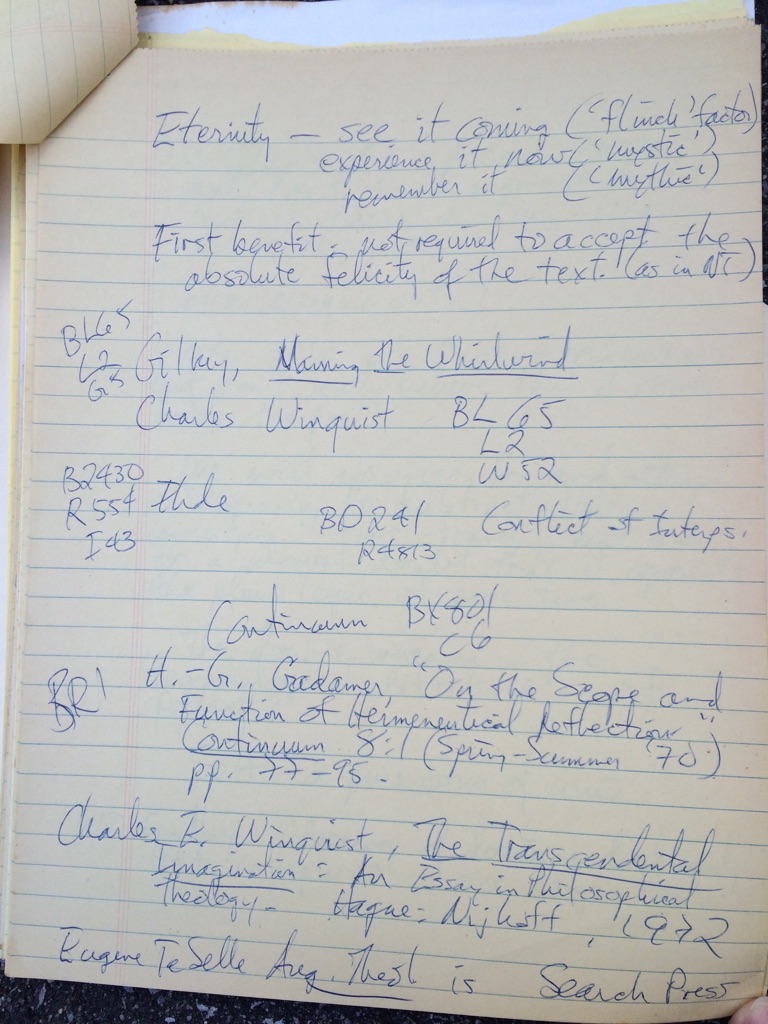 Eternity — see it coming ('flinch' factor)
experience it now ('mystic')
remember it ('mythic')
First benefit: not required to accept the
absolute felicity of the text. (as in NT)
BL65
L2
G5
Gilkey, Naming the Whirlwind
Charles Winquist BL 65
L2
W52
B2430
R554
I43
Ihde
BD241 Conflict of Interps.
R4813
Continuum BX801
C6
BR1
H.-G. Gadamer, "On the Scope and
Function of Hermeneutical Reflection"
Continuum 8:1 (Spring-Summer '70)
pp. 77-95.
Charles E. Winquist, The Transcendental
Imagination: An Essay in Philosophical
Theology. Hague: Nijhoff, 1972
Eugene TeSelle Aug. Theol is Search Press